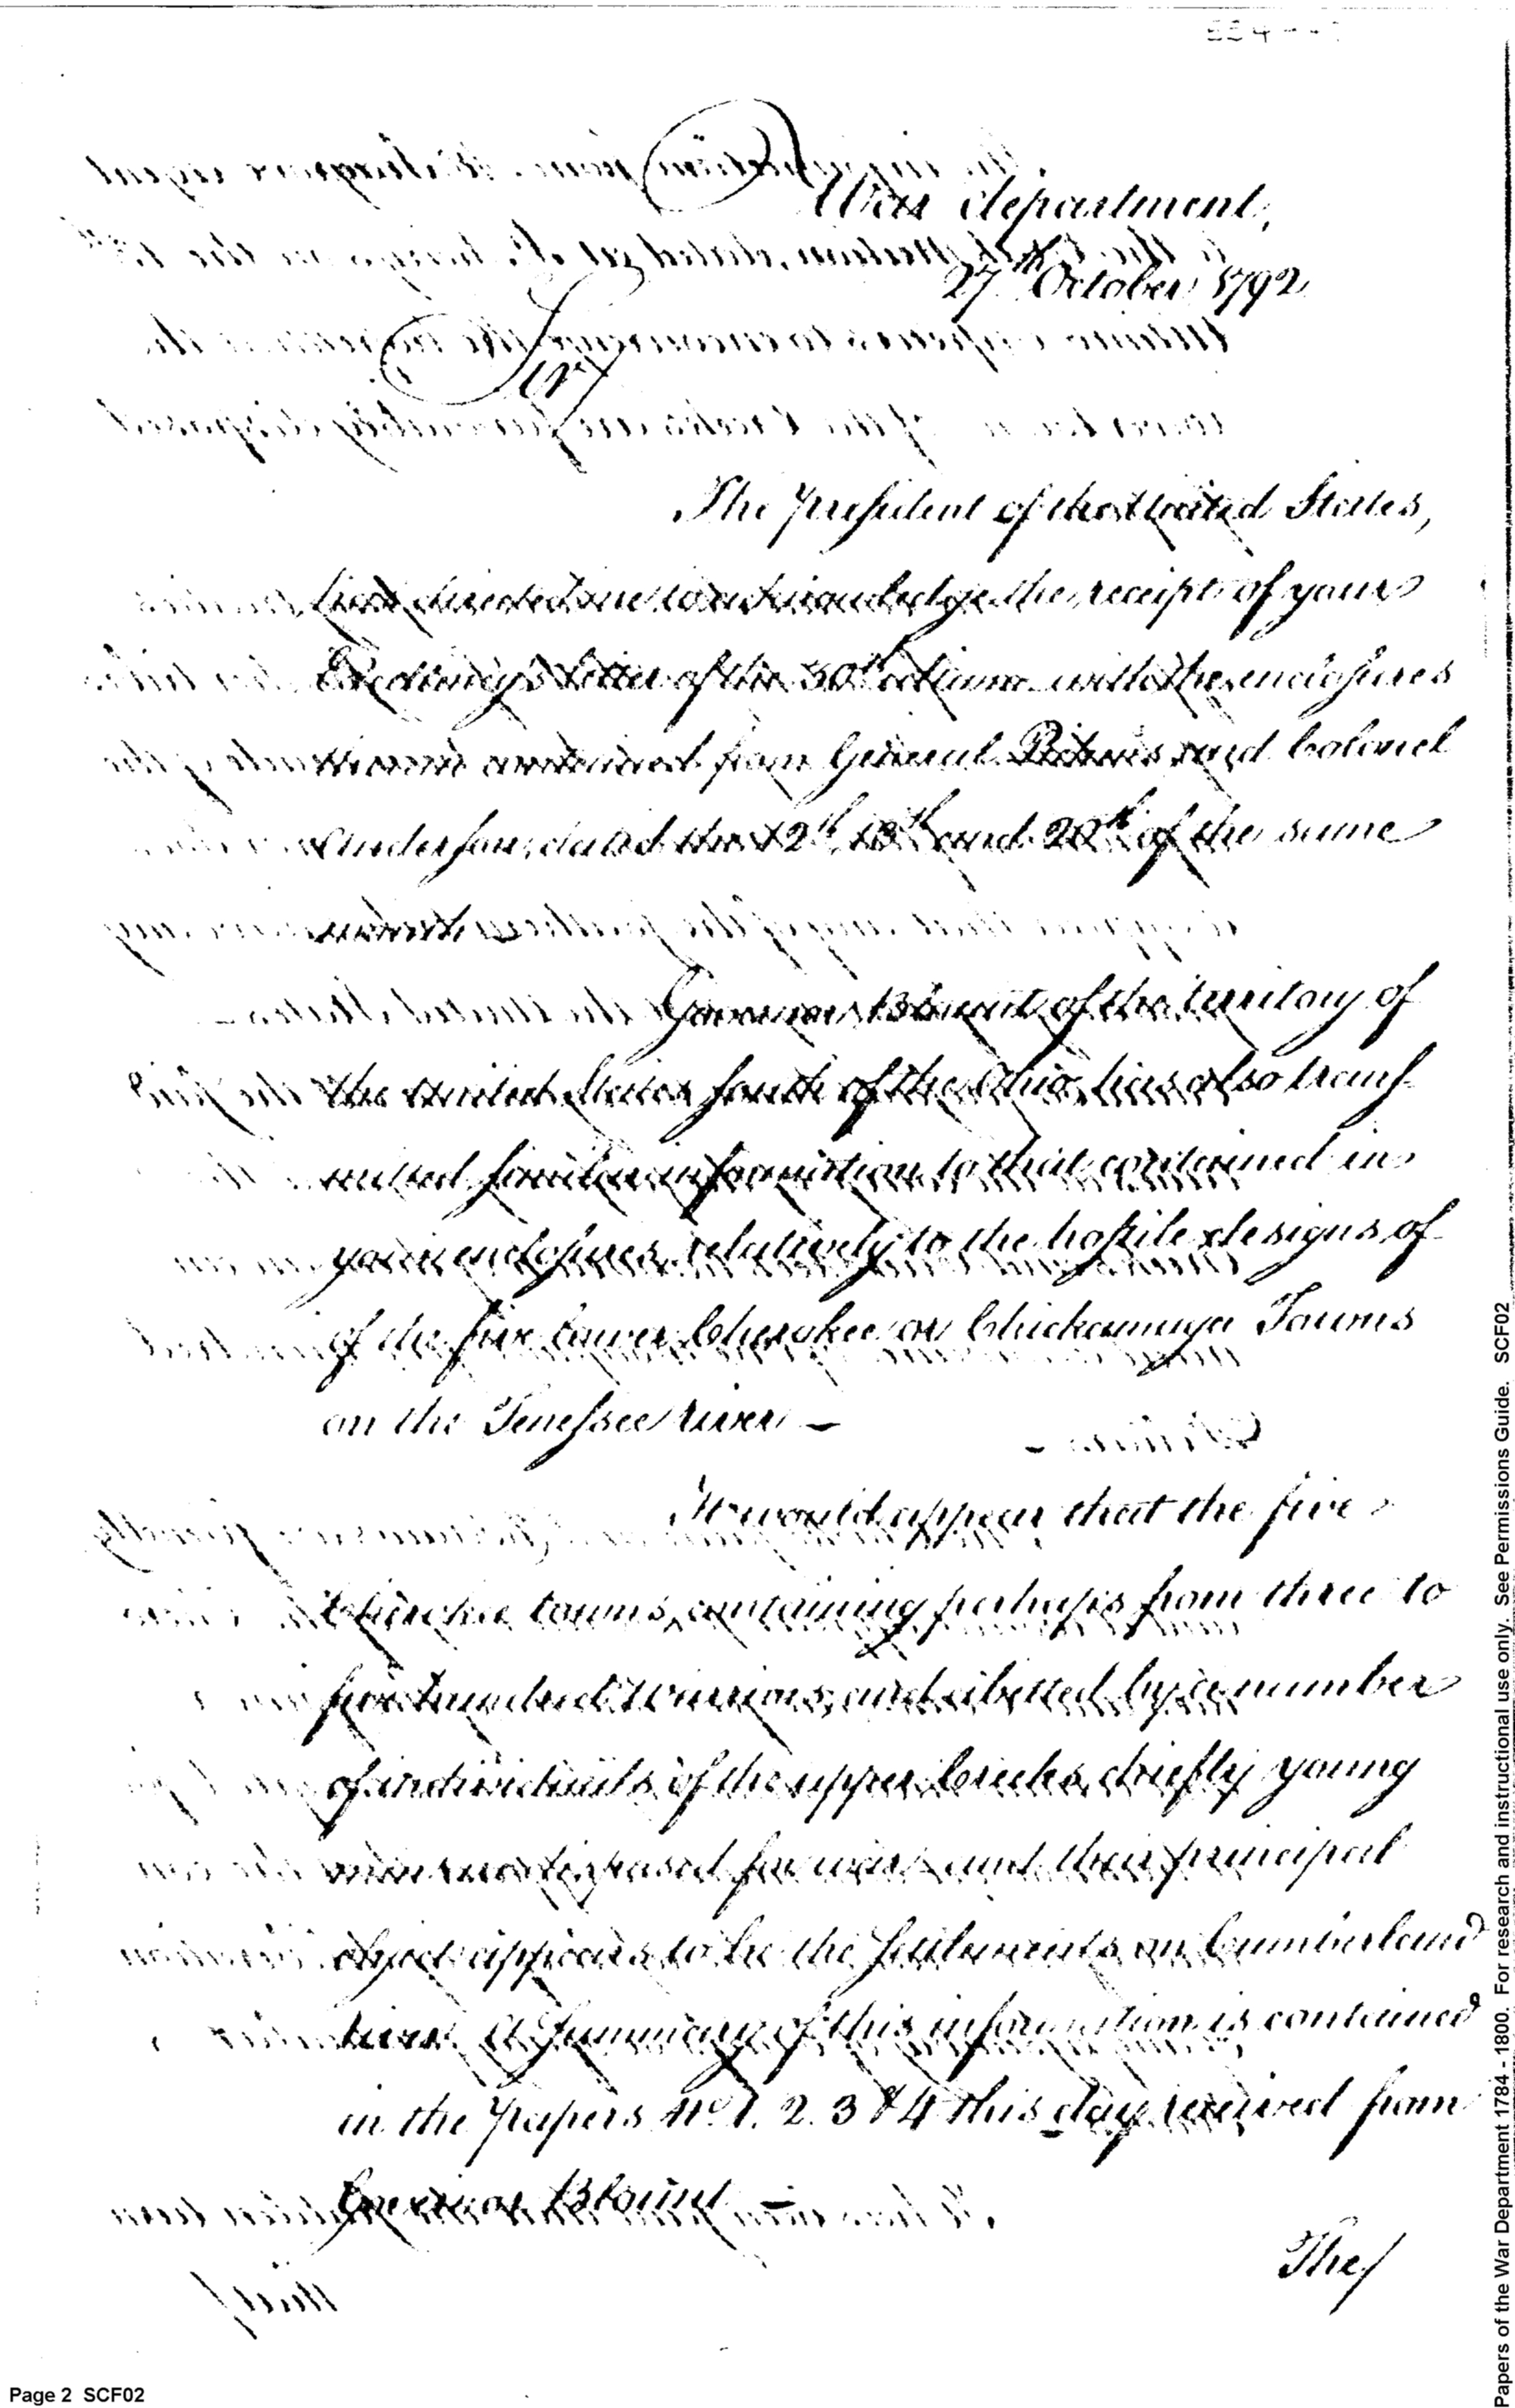 War department,
27th October 1792
Sir,
The President of the United States,
has directed me to acknowledge the receipt of your
Excellency's letter of the 30th ultimo with the enclosures
therein contained from General Pickens and Colonel
Anderson, dated the 12th, 18th and 20th of the same
month.
Governor Blount of the territory of
the United States south of the Ohio, has also trans-
mitted similar information to that contained in
your enclosures, relatively to the hostile designs of
of the five lower Cherokee or Chickamuga Towns
on the Tenessee river –
It would appear that the five
Cherokee towns, containing perhaps from three to
five hundred Warriors, and abetted by a number
of individuals of the upper Creeks, chiefly young
men are disposed for war and their principal
object appears to be the settlements on Cumberland
river. A summary of this information is contained
in the papers No. 1. 2. 3 & 4 this day received from
Governor Blount –
The/
Page 2 SCF02
Papers of the War Department 1784 - 1800. For research and instructional use only. See Permissions Guide. SCF02